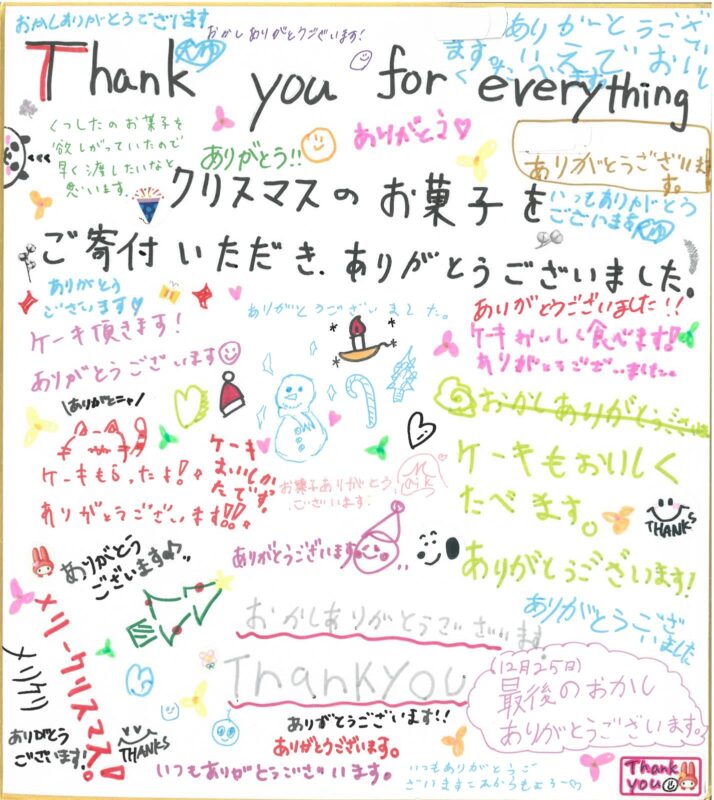 おかしありがとうございます
おかしありがとうございます!
ありがとうござい
ます。
Thank you for everything
くつしたのお菓子を
欲しがっていたので
早く渡したいなと
思います。
ありがとう!!
ありがとう♡
ありがとうございます。
クリスマスのお菓子を
いつもありがとう
ございます
ご寄付いただき、ありがとうございました。
ありがとう
ございます♡
ケーキ頂きます!
ありがとうございます
ありがとうございました。
ありがとうございました!!
ケーキおいしく食べます!
ありがとうございました。
ありがとニャ
おかしありがとう
ケーキもらったよ!
ありがとうございます!!
ケーキ
おいしか
たです
お菓子ありがとう
ございます
ケーキもおいしく
たべます。
ありがとうございます!
THANKS
ありがとう
ございます♪
ありがとうございます
メリークリスマス!
メリクリ
おかしありがとうございます
Thankyou
ありがとうござ
いました
(12月25日)
最後のおかし
ありがとうございます。
ありがとう
ございます!
THANKS
ありがとうございます!!
ありがとうございます。
いつもありがとうございます。
いつもありがとうご
ざいます
Thank
you